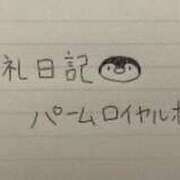 礼日記
パームロイヤルホ